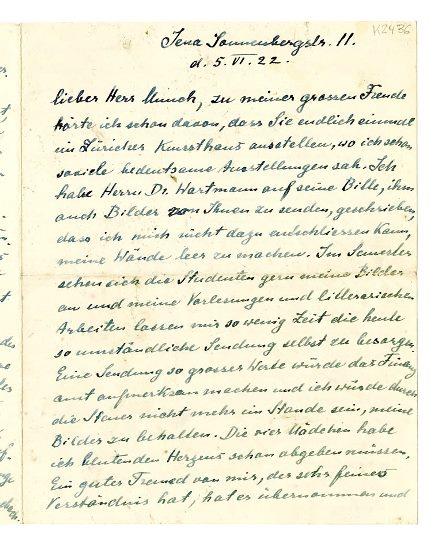 K2436
Jena Sonnenbergstr. 11.
d. 5. VI. 22.
lieber Herr Munch, zu meiner grossen Freude
hörte ich schon davon, dass Sie endlich einmal
im Züricher Kunsthaus ausstellen, wo ich schon
soviele bedeutsame Ausstellungen sah. Ich
habe Herrn Dr. Wartmann auf seine Bitte, ihm
auch Bilder von Ihnen zu senden, geschrieben,
dass ich mich nicht dazu entschliessen kann,
meine Wände leer zu machen. Im Semester
sehen sich die Studenten gern meine Bilder
an und meine Vorlesungen und litterarischen
Arbeiten lassen mir so wenig Zeit die heute
so umständliche Sendung selbst zu besorgen.
Eine Sendung so grosser Werte würde das Finanz
amt aufmerksam machen und ich würde durch
die Steuer nicht mehr im Stande sein, meine
Bilder zu behalten. Die vier Mädchen habe
ich blutenden Herzens schon abgeben müssen.
Ein guter Freund von mir, der sehr feines
Verständnis hat, hat es übernommen und